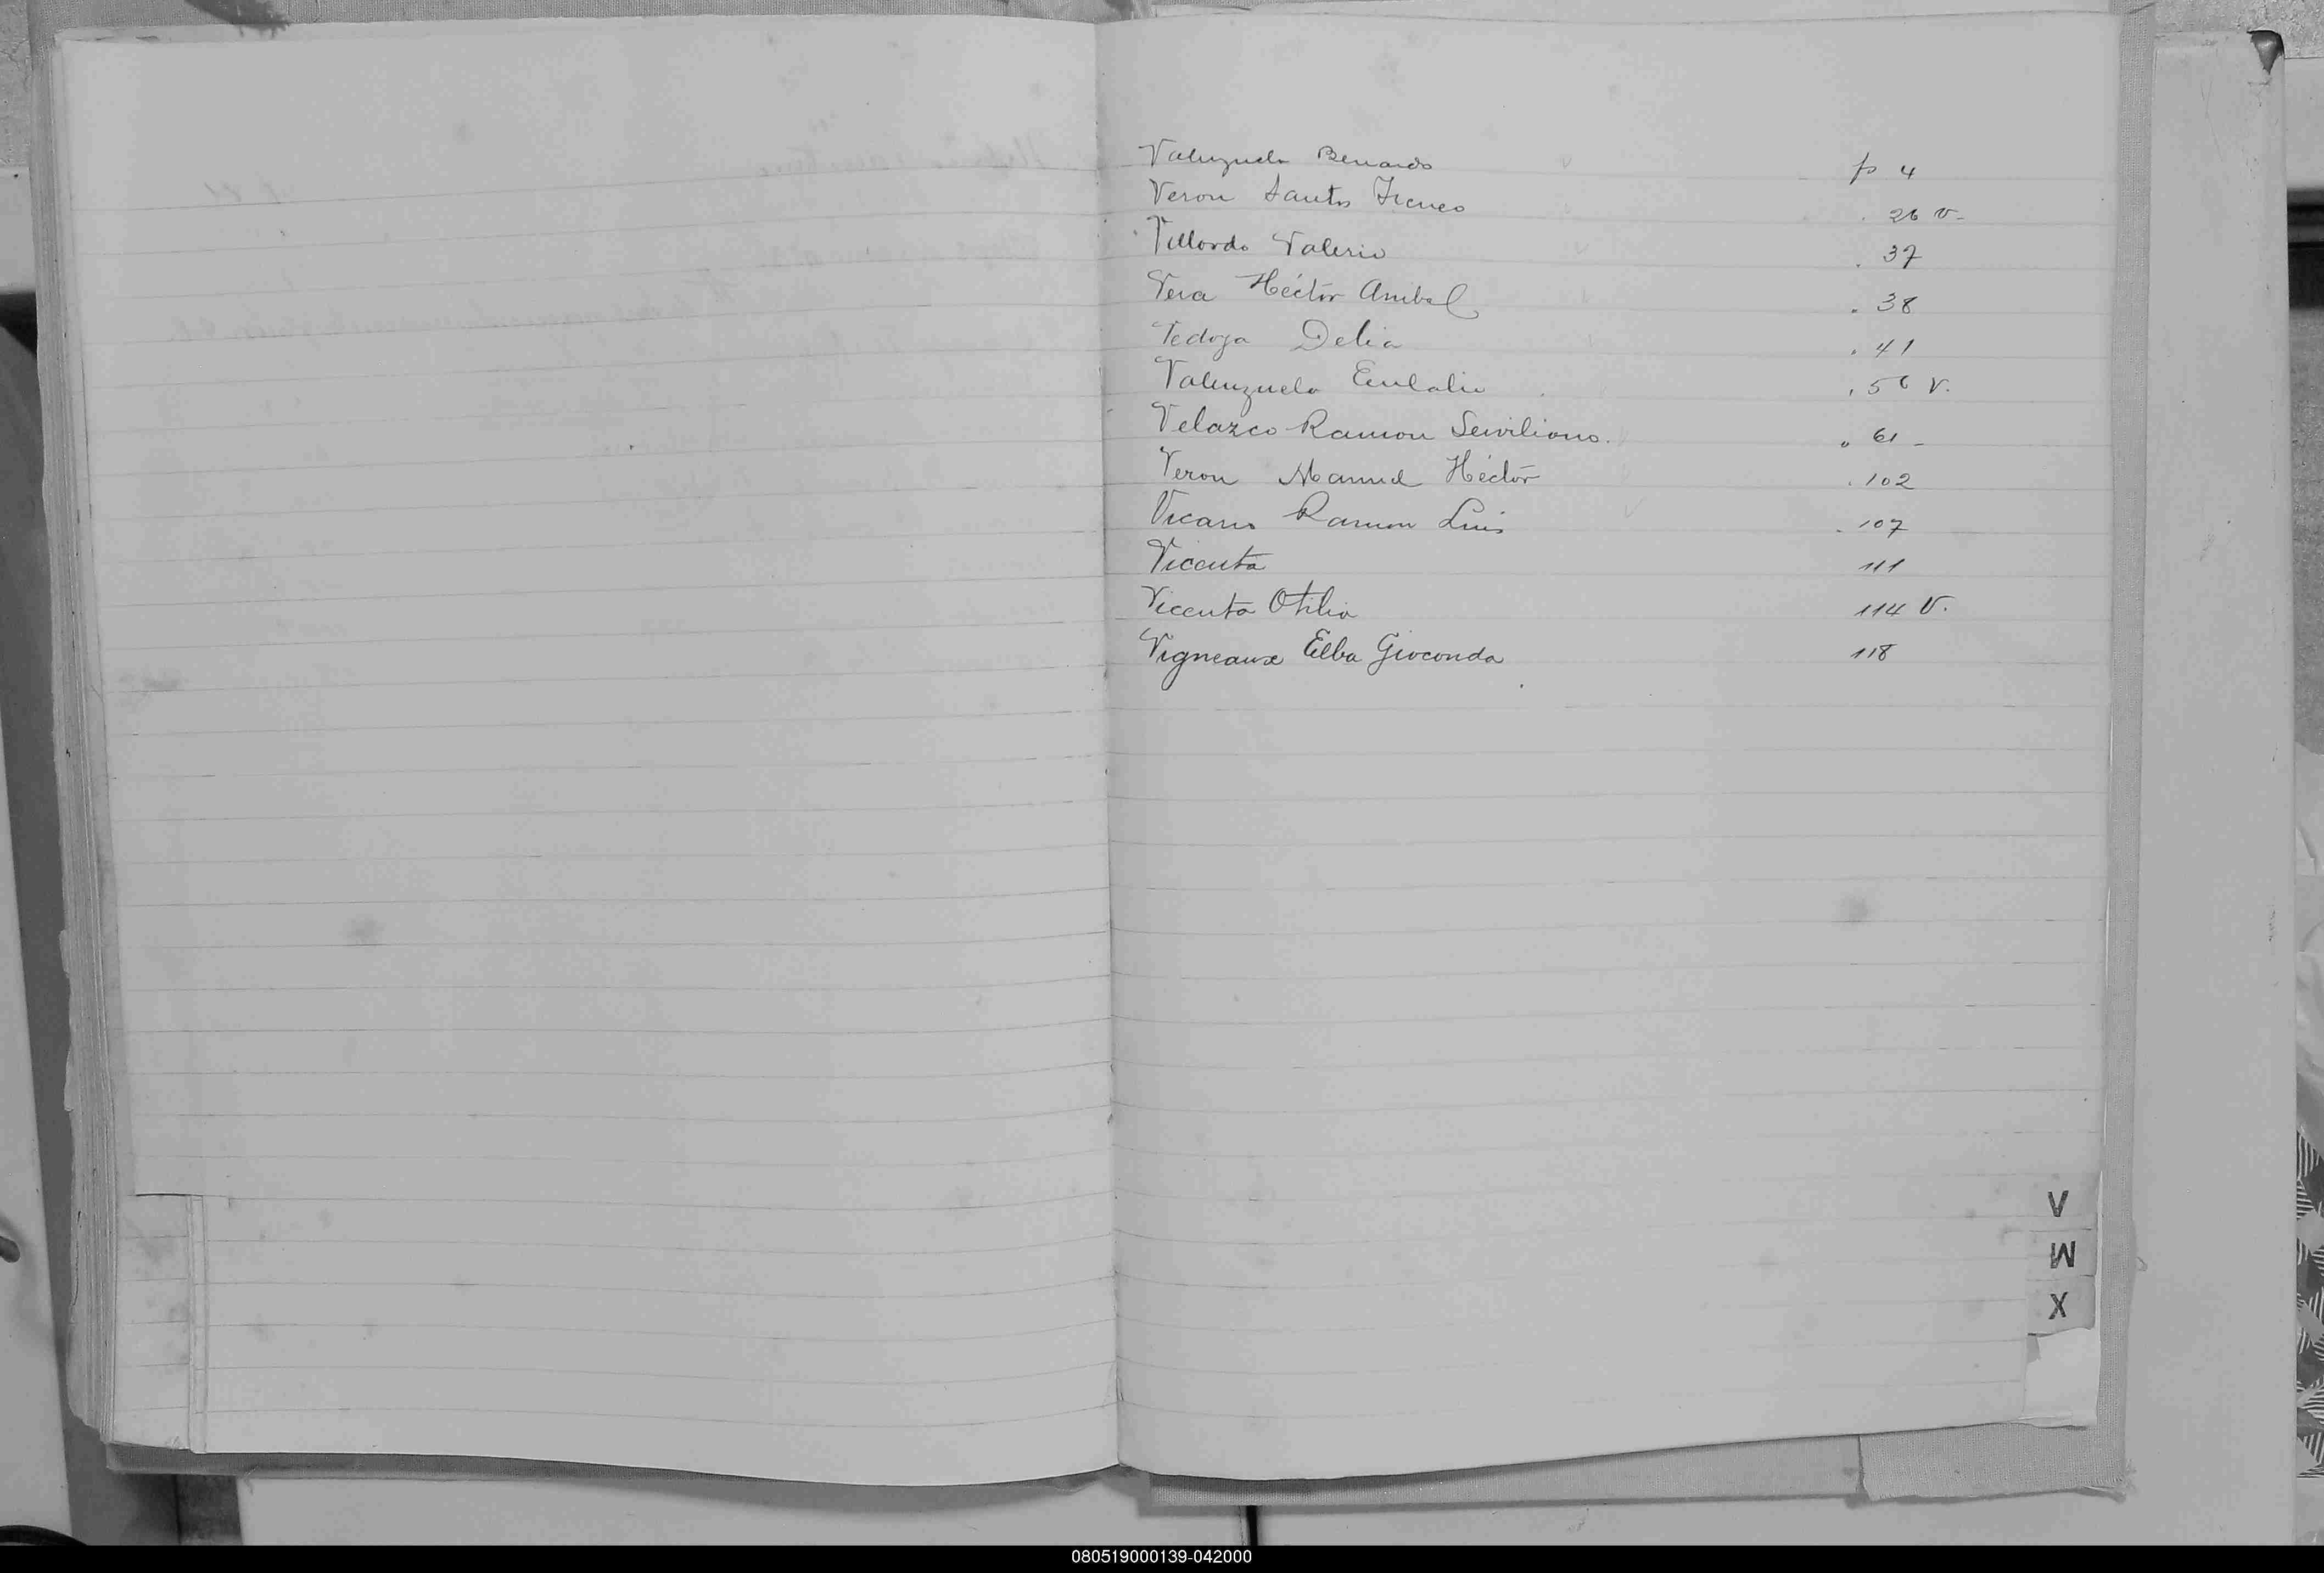 Valenzuela Bernardo p 4
Veron Santos Ireneo . 26 v-
Villordo Valerio . 37
Vera Héctor Anibal . 38
Vedoya Delia . 41
Valenzuela Eulalio . 56 v.
Velazco Ramon Serviliano. " 61 -
Veron Manuel Héctor . 102
Vicario Ramon Luis . 107
Vicenta 111
Vicenta Otilia 114 v.
Vigneaux Elba Gioconda 118
V
W
X
080519000139-042000